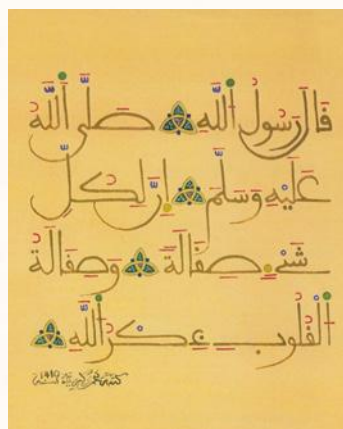 قَالَ رَسُولُ اللَّهِ صَلَّى اللَّهُ
عَلَيْهِ وَسَلَّمَ إِنَّ لِكُلِّ
شَيْءٍ صِقَالَةً وَصِقَالَةُ
الْقُلُوبِ ذِكْرُ اللَّهِ
كتبه